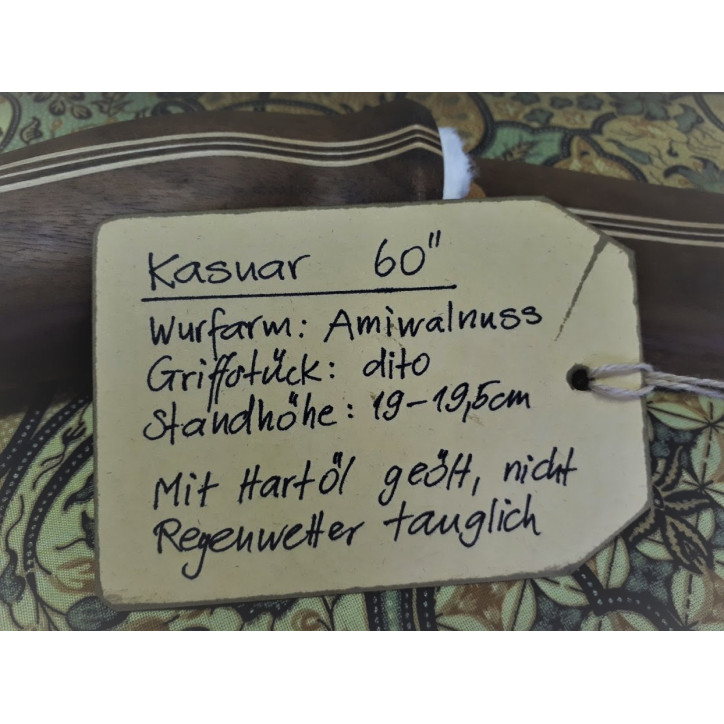 Kasuar 60"
Wurfarm: Amiwalnuss
Griffstück: dito
Standhöhe: 19-19,5cm
Mit Hartöl geölt, nicht
Regenwetter tauglich